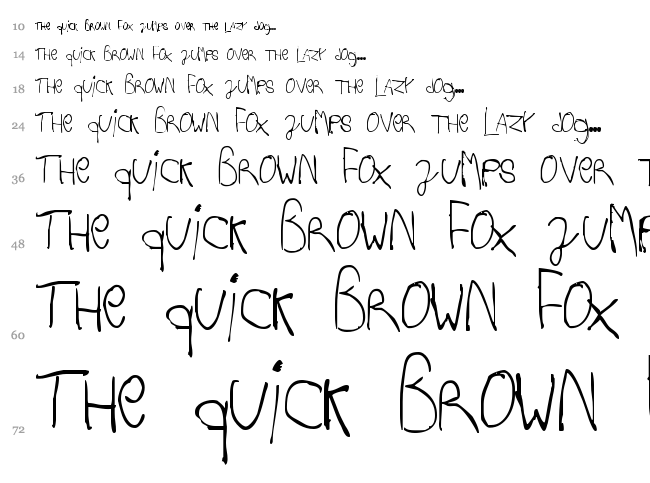 10 THE quick BROWN Fox JUMPS OVER THE LAZY dog...
14 THE quick BROWN Fox JUMPS OVER THE LAZY dog...
18 THE quick BROWN Fox JUMPS OVER THE LAZY dog...
24 THE quick BROWN Fox JUMPS OVER THE LAZY dog...
36 THE quick BROWN Fox JUMPS OVER T
48 THE quick BROWN Fox JUMP
60 THE quick BROWN Fox
72 THE quick BROWN